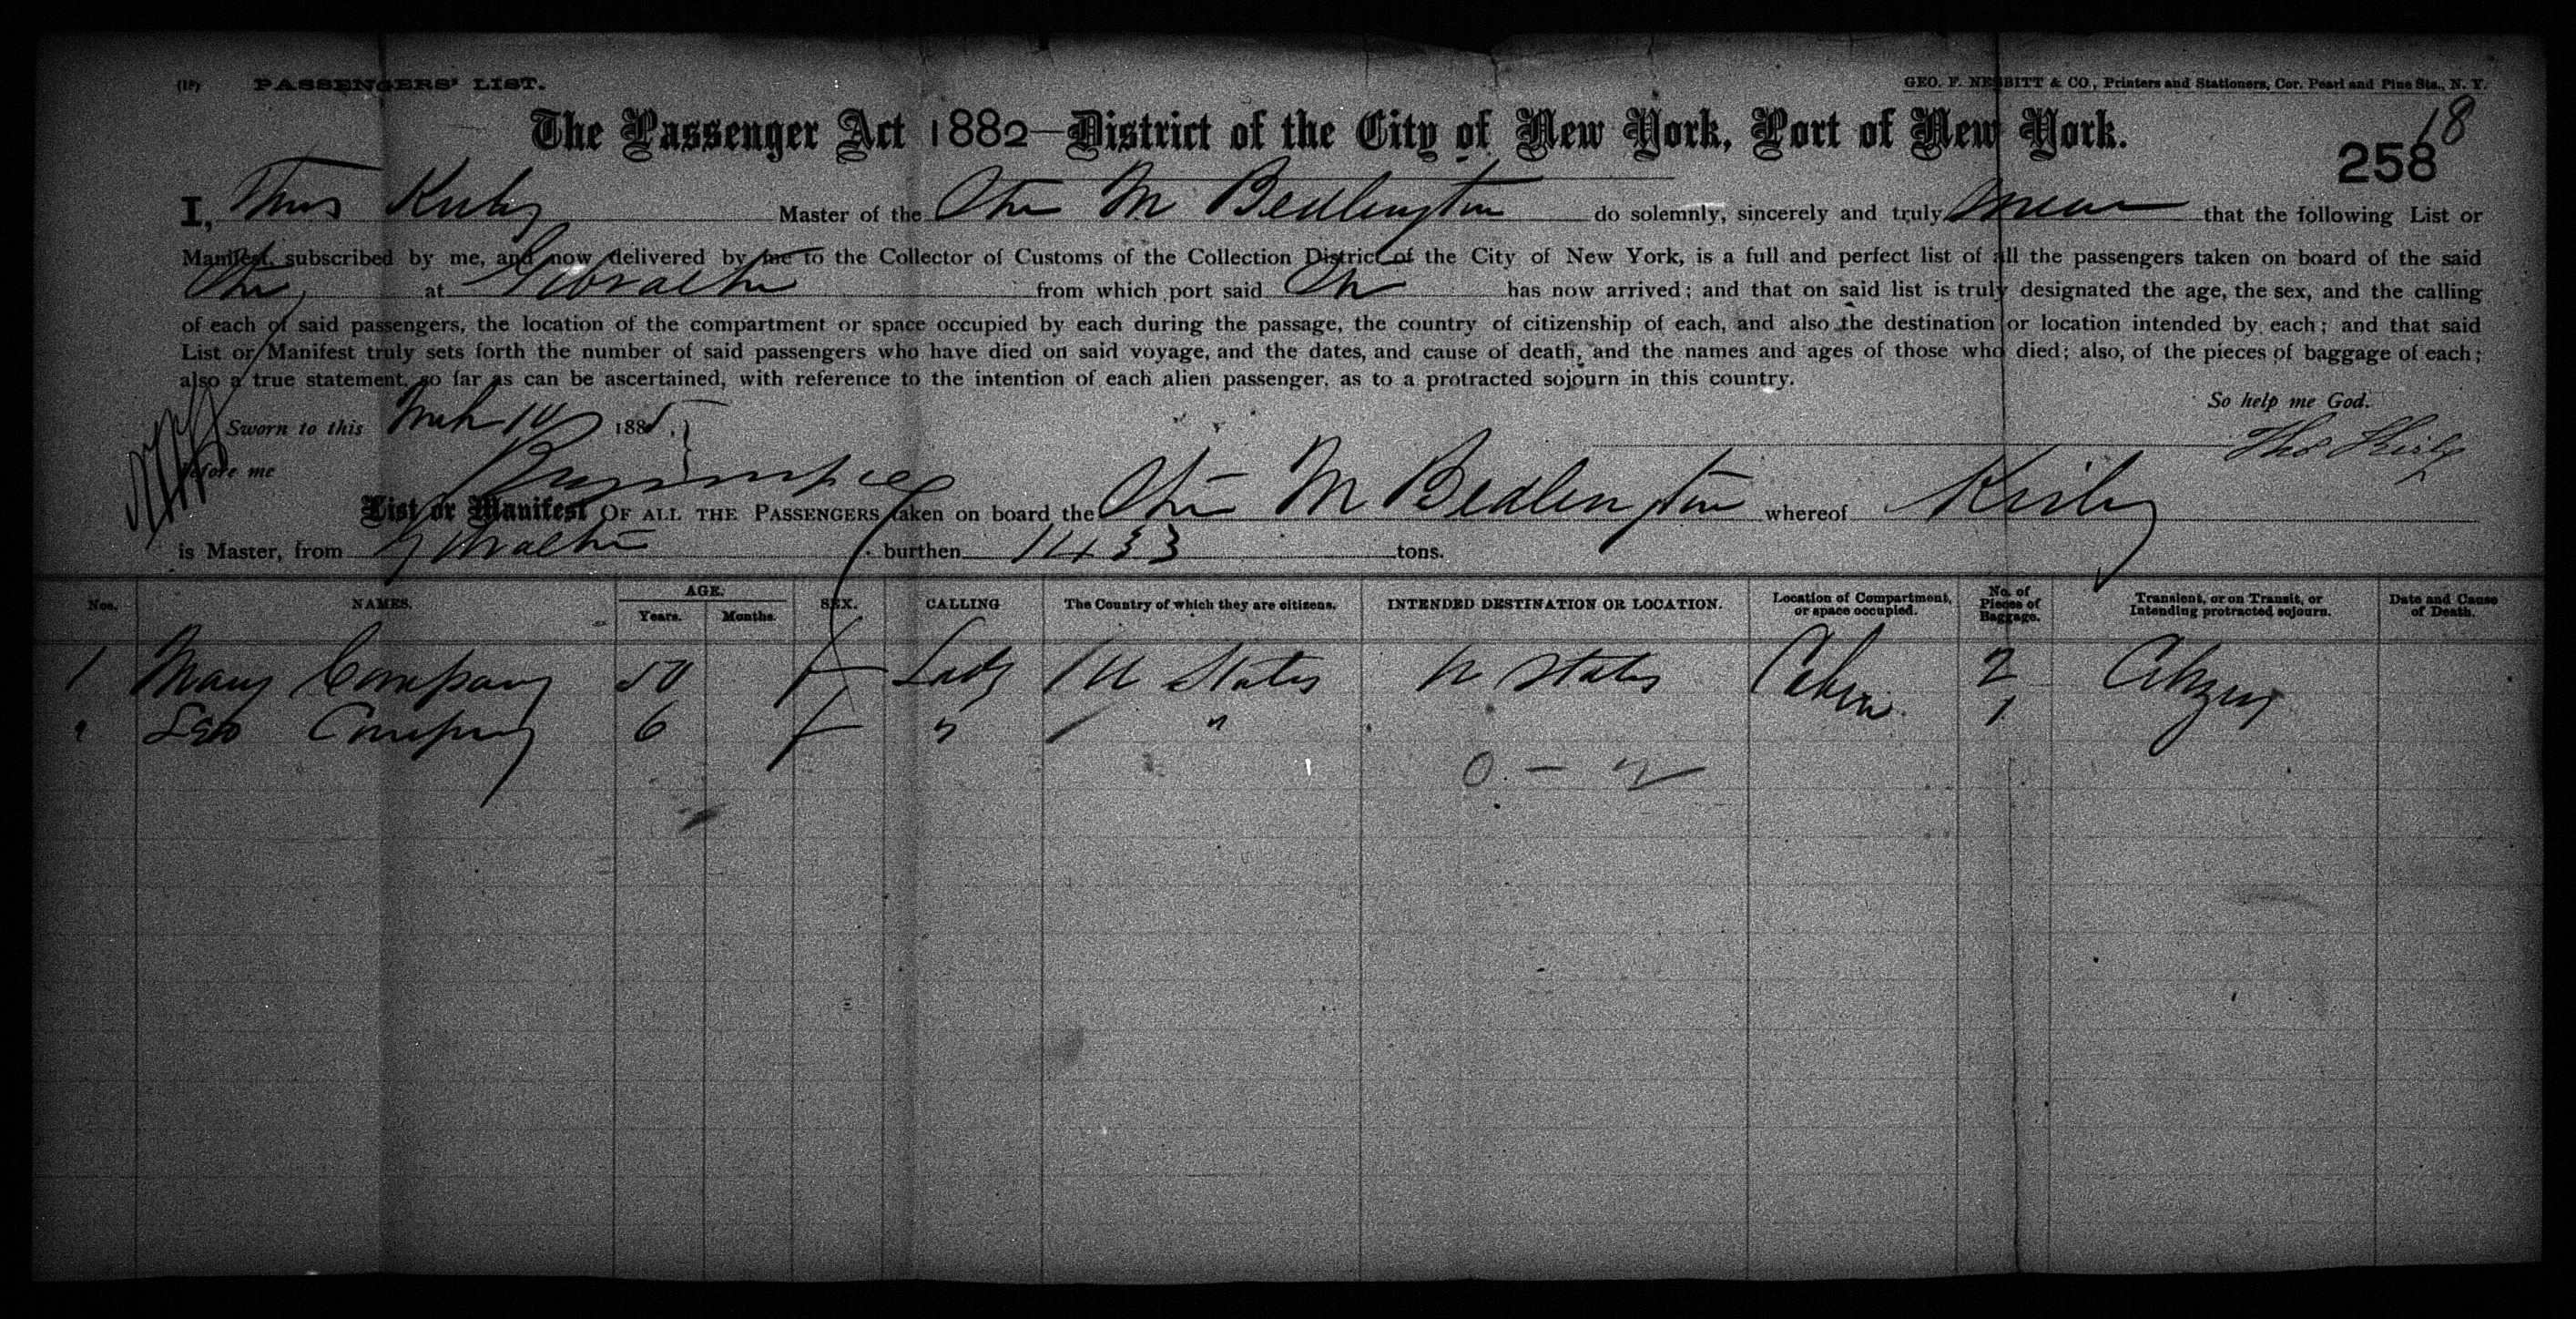 (18) PASSENGERS' LIST. GEO. F. NESBITT & CO., Printers and Stationers, Cor. Pearl and Pine Sts., N. Y.
The Passenger Act 1882—District of the City of New York, Port of New York.
18
258
I, Thos Kirby Master of the Str M Bedlington do solemnly, sincerely and truly swear that the following List or
Manifest, subscribed by me, and now delivered by me to the Collector of Customs of the Collection District of the City of New York, is a full and perfect list of all the passengers taken on board of the said
Str at Gibraltar from which port said Str has now arrived; and that on said list is truly designated the age, the sex, and the calling
of each of said passengers, the location of the compartment or space occupied by each during the passage, the country of citizenship of each, and also the destination or location intended by each; and that said
List or Manifest truly sets forth the number of said passengers who have died on said voyage, and the dates, and cause of death, and the names and ages of those who died; also, of the pieces of baggage of each;
also a true statement, so far as can be ascertained, with reference to the intention of each alien passenger, as to a protracted sojourn in this country.
So help me God.
Sworn to this Mch 14 1885.
Thos Kirby
Before me
List or Manifest OF ALL THE PASSENGERS taken on board the Str M Bedlington whereof Kirby
is Master, from Gibraltar burthen 1433 tons.
Nos. NAMES. AGE. Years. Months. SEX. CALLING The Country of which they are citizens. INTENDED DESTINATION OR LOCATION. Location of Compartment, or space occupied. No. of Pieces of Baggage. Transient, or on Transit, or Intending protracted sojourn. Date and Cause of Death.
1 Mary Company 50 f Lady U States U States Cabin 2 Citizens
Company 6 f " " 1
0 — 2